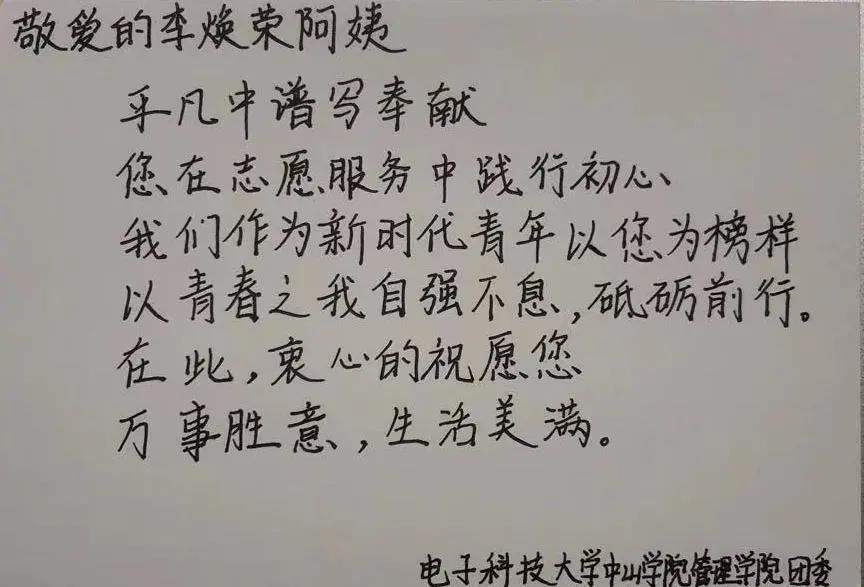 敬爱的李焕荣阿姨
平凡中谱写奉献
您在志愿服务中践行初心、
我们作为新时代青年以您为榜样
以青春之我自强不息,砥砺前行。
在此,衷心的祝愿您
万事胜意,生活美满。
电子科技大学中山学院管理学院团委